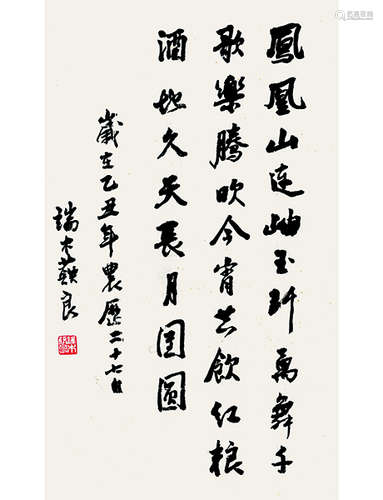 鳳凰山连岫玉玕萬舞千
歌樂騰吹今宵共飲红粮
酒地久天長月团圓
歲在乙丑年農歷二十七日
端木蕻良